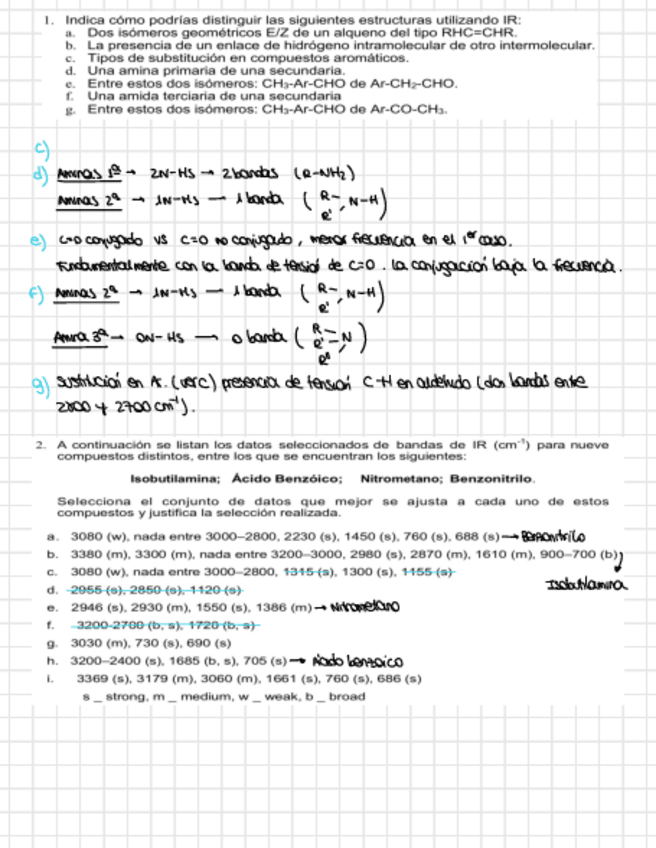 1. Indica cómo podrías distinguir las siguientes estructuras utilizando IR:
a. Dos isómeros geométricos E/Z de un alqueno del tipo RHC=CHR.
b. La presencia de un enlace de hidrógeno intramolecular de otro intermolecular.
c. Tipos de substitución en compuestos aromáticos.
d. Una amina primaria de una secundaria.
e. Entre estos dos isómeros: CH₃-Ar-CHO de Ar-CH₂-CHO.
f. Una amida terciaria de una secundaria
g. Entre estos dos isómeros: CH₃-Ar-CHO de Ar-CO-CH₃.
c)
d) Aminas 1ª → 2N-Hs → 2 bandas (R-NH₂)
Aminas 2ª → 1N-Hs → 1 banda (R-, R', N-H)
e) C=O conjugado vs C=O no conjugado, menor frecuencia en el 1er caso.
Fundamentalmente con la banda de tensión de C=O. La conjugación baja la frecuencia.
f) Aminas 2ª → 1N-Hs → 1 banda (R-, R', N-H)
Amina 3ª → 0N-Hs → 0 banda (R- R'- N R²)
g) Sustitución en A. (ver c) presencia de tensión C-H en aldehído (dos bandas entre
2800 y 2700 cm⁻¹).
2. A continuación se listan los datos seleccionados de bandas de IR (cm⁻¹) para nueve
compuestos distintos, entre los que se encuentran los siguientes:
Isobutilamina; Ácido Benzóico; Nitrometano; Benzonitrilo.
Selecciona el conjunto de datos que mejor se ajusta a cada uno de estos
compuestos y justifica la selección realizada.
a. 3080 (w), nada entre 3000–2800, 2230 (s), 1450 (s), 760 (s), 688 (s) → Benzonitrilo
b. 3380 (m), 3300 (m), nada entre 3200–3000, 2980 (s), 2870 (m), 1610 (m), 900–700 (b)
c. 3080 (w), nada entre 3000–2800, 1315 (s), 1300 (s), 1155 (s)
Isobutilamina
d. 2955 (s), 2850 (s), 1120 (s)
e. 2946 (s), 2930 (m), 1550 (s), 1386 (m) → Nitrometano
f. 3200-2700 (b, s), 1720 (b, s)
g. 3030 (m), 730 (s), 690 (s)
h. 3200–2400 (s), 1685 (b, s), 705 (s) → Ácido benzoico
i. 3369 (s), 3179 (m), 3060 (m), 1661 (s), 760 (s), 686 (s)
s _ strong, m _ medium, w _ weak, b _ broad